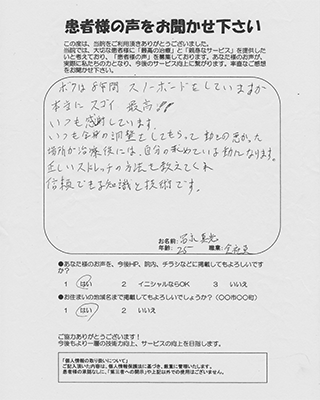 患者様の声をお聞かせ下さい
この度は、当院をご利用頂きありがとうございました。
当院では、大切な患者様に「最高の治療」と「親身なサービス」を提供したい
と考えており、「患者様の声」を募集しております。あなた様のお声が、
実際に私たちの力となり、今後のサービス向上に繋がります。率直なご感想
をお聞かせ下さい。
ボクは8年間 スノーボードをしていますが
本当にスゴイ 最高!!
いつも感謝しています。
いつも全身の調整をしてもらって動きの悪かった
場所が治療後には、自分の求めている動になります。
正しいストレッチの方法も教えてくれ
信頼できる知識と技術です。
お名前:
年齢: 25 職業: 会社員
●あなた様のお声を、今後HP、院内、チラシなどに掲載してもよろしいです
か?
1 はい 2 イニシャルならOK 3 いいえ
●お住まいの地域名まで掲載してもよろしいでしょうか?(〇〇市〇〇町)
1 はい 2 いいえ
ご協力ありがとうございます!
今後もより一層の技術力向上、サービスの向上を目指します。
「個人情報の取り扱いについて」
ご記入頂いた内容は、個人情報保護法に基づき、厳重に管理いたします。
患者様の承諾なしに、「第三者への開示」や上記以外での使用はございません。